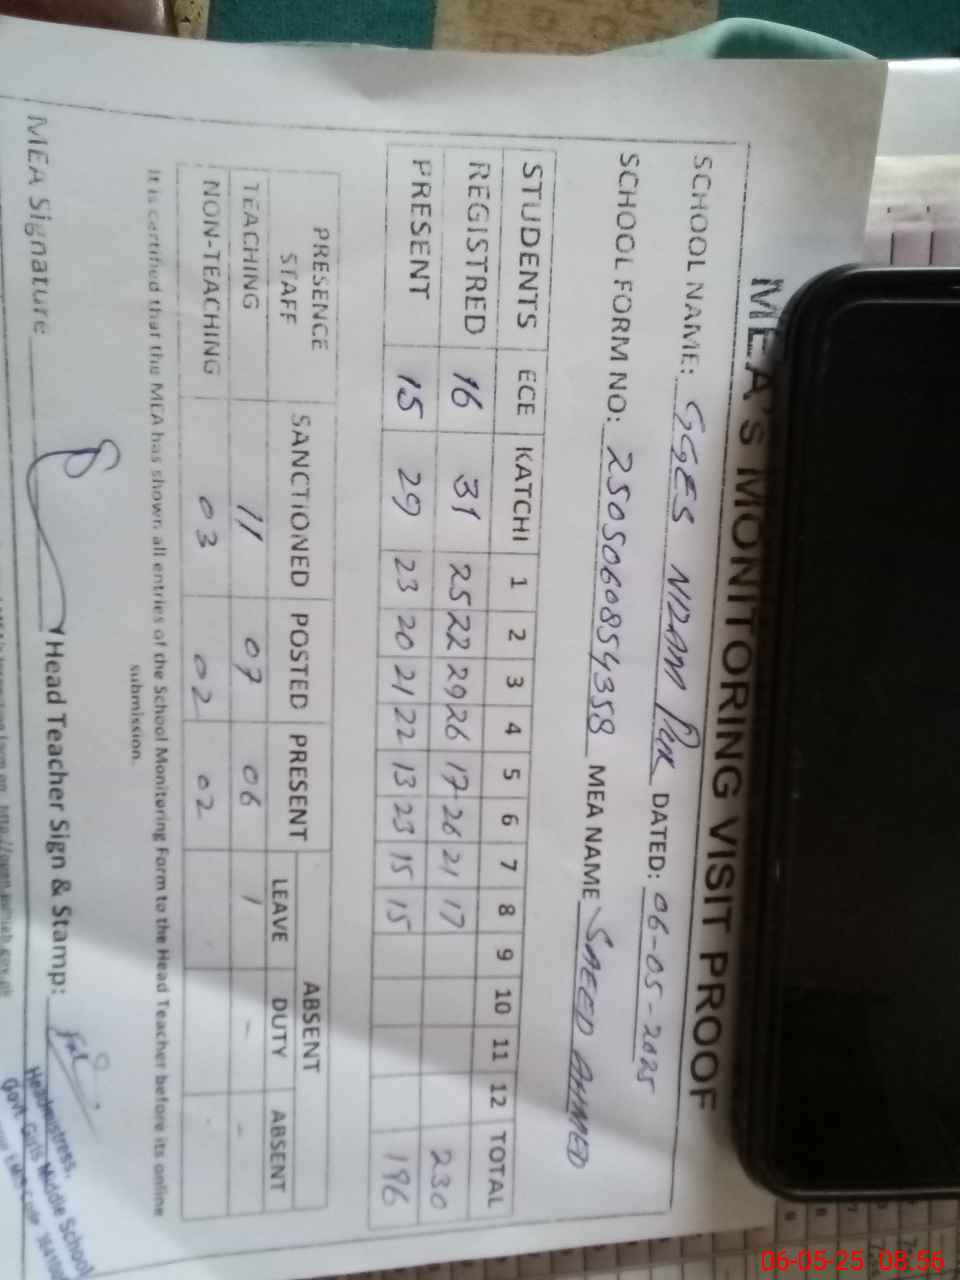 MEA's MONITORING VISIT PROOF
SCHOOL NAME: GGES NIZAM PUR DATED: 06-05-2025
SCHOOL FORM NO: 2505060854358 MEA NAME SAEED AHMED
STUDENTS ECE KATCHI 1 2 3 4 5 6 7 8 9 10 11 12 TOTAL
REGISTRED 16 31 25 22 29 26 17 26 21 17 230
PRESENT 15 29 23 20 21 22 13 23 15 15 196
PRESENCE STAFF SANCTIONED POSTED PRESENT ABSENT
LEAVE DUTY ABSENT
TEACHING 11 07 06 1 - -
NON-TEACHING 03 02 02
It is certified that the MEA has shown all entries of the School Monitoring Form to the Head Teacher before its online
submission.
MEA Signature Head Teacher Sign & Stamp:
Headmistress,
Govt. Girls Middle School
06-05-25 08:56